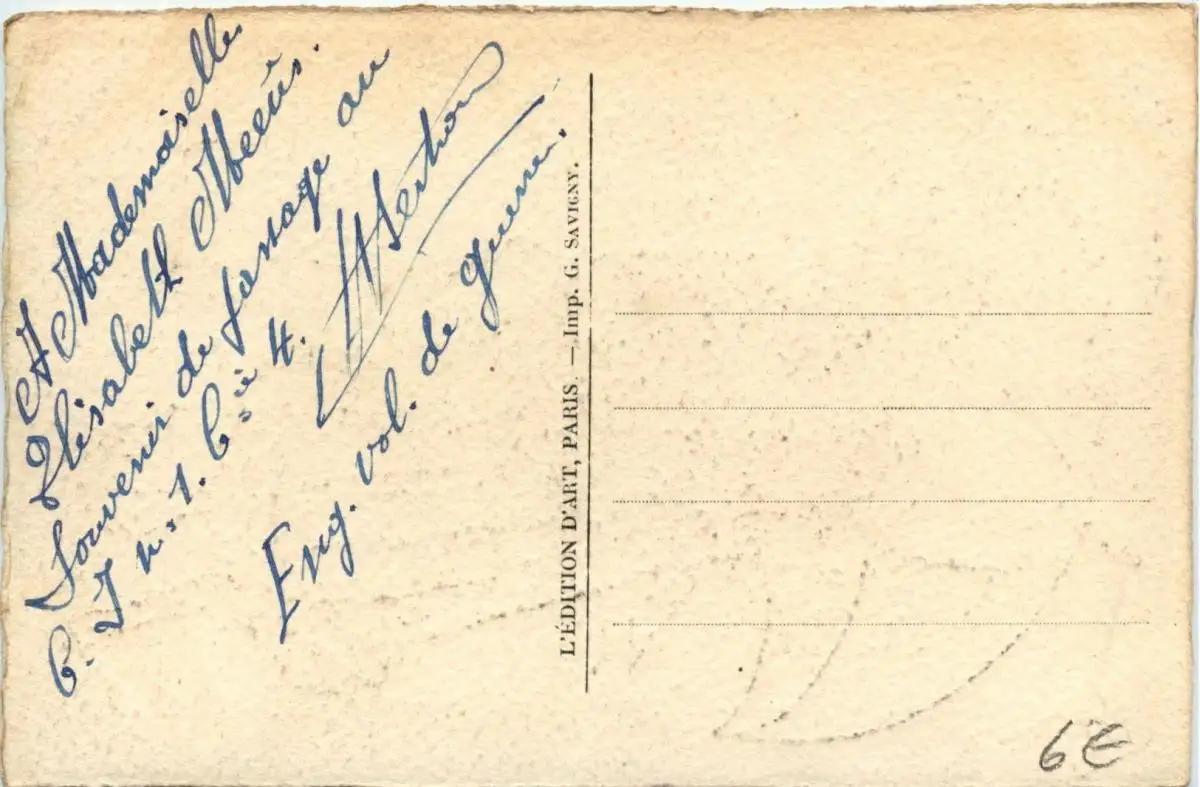 A Mademoiselle
Elisabeth Meeùs.
Souvenir de passage au
C. I n° 1. Cie 4.
Eng. vol. de guerre.
L'ÉDITION D'ART, PARIS. — Imp. G. SAVIGNY.
6€